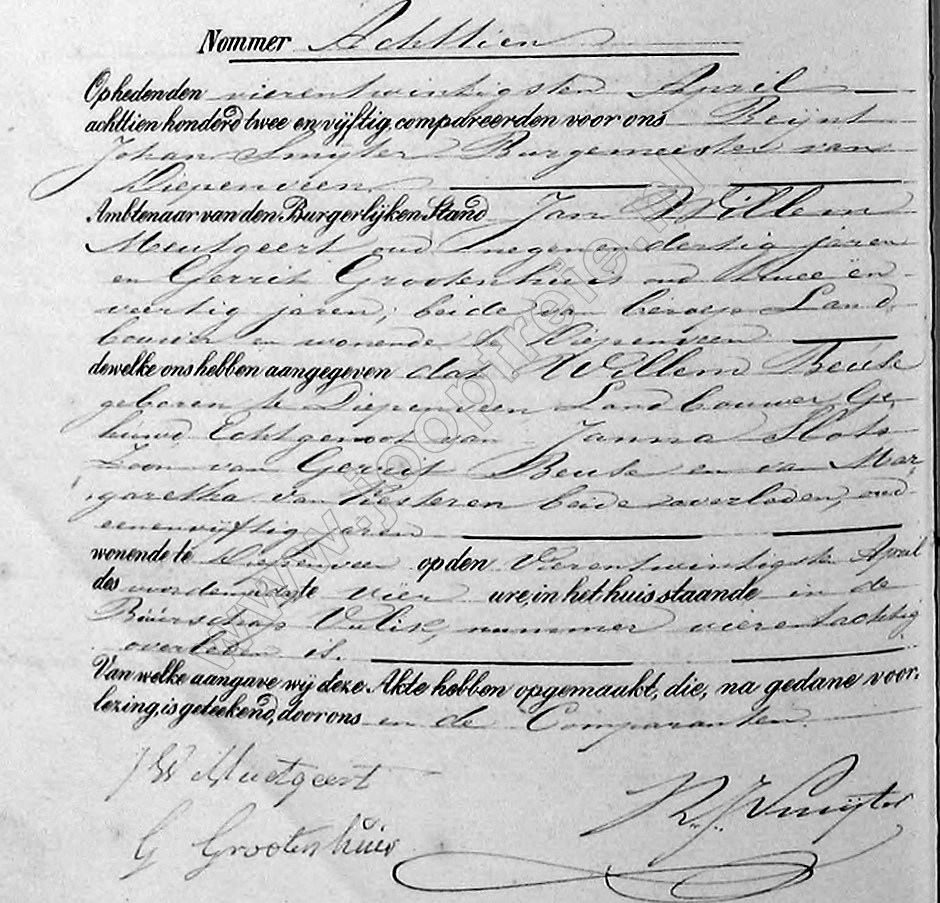 Nommer Achttien
Op heden den vierentwintigsten April
achttien honderd twee en vijftig, compareerden voor ons Reijnt
Johan Smijter Burgemeester van
Diepenveen
Ambtenaar van den Burgerlijken Stand Jan Willem
Meutgeert oud negen en dertig jaren
en Gerrit Grootenhuis oud twee en
veertig jaren, beide van beroep Land
bouwer en wonende te Diepenveen
dewelke ons hebben aangegeven dat Willem Beute
geboren te Diepenveen Landbouwer Ge
huwd Echtgenoot van Janna Slots
Zoon van Gerrit Beute en van Mar
garetha van Resteren beide overleden, oud
eenenvijftig jaren
wonende te Diepenveen op den Vierentwintigsten April
des voordemiddags te vier ure, in het huis staande in de
Buurschap nummer vierentachtig
overleden is.
Van welke aangave wij deze Akte hebben opgemaakt, die, na gedane voor-
lezing, is geteekend, door ons en de Comparanten
JW Muetgeert
R. J. Smijter
G Grootenhuis
www.jooptreie.nl